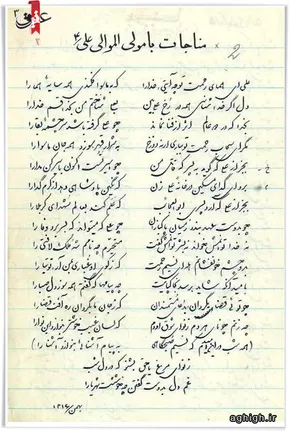 عقیق
مناجات با مولی الموالی علی ع
علی ای همای رحمت تو چه آیتی خدارا که بماسوا فکندی همه سایهٔ هما را
دل اگر خداشناسی همه در رخ علی بین به علی شناختم من بخدا قسم خدارا
بخدا که در دو عالم اثر از فنا نماند چو علی گرفته باشد سرچشمهٔ بقارا
مگر ای سحاب رحمت تو بباری ارنه دوزخ به شرار قهر سوزد همه جان ماسوا را
بجز از علی که گوید به پسر که قاتل من چو اسیر تست اکنون باسیر کن مدارا
برو ای گدای مسکین در خانهٔ علی زن که نگین پادشاهی دهد از کرم گدارا
بجز از علی که آرد پسری ابوالعجائب که علم کند بعالم شهدای کربلا را
چو بدوست عهد بندد ز میان پاکبازان چو علی که میتواند که بسر برد وفا را
نه خدا توانمش خواند نه بشر توانمش گفت متحیرم چه نامم شه ملک لافتی را
بدو چشم خونفشانم هله ای نسیم رحمت که ز کوی او غباری بمن آر توتیا را
بامید آنکه شاید برسد بخاک پایت چه پیامها همه سوز دل صبا را
چو تویی قضای گردان بدعای مستمندان که ز جان ما بگردان ره آفت قضا را
چه زنم چو نای هردم ز نوای شوق او دم که لسان غیب خوشتر بنوازد این نوا را
(همه شب در این امیدم که نسیم صبحگاهی به پیام آشنائی بنوازد آشنا را)
ز نوای مرغ یا حق بشنو که در دل شب
غم دل بدوست گفتن چه خوشست شهریارا
بهمن
aghigh.ir